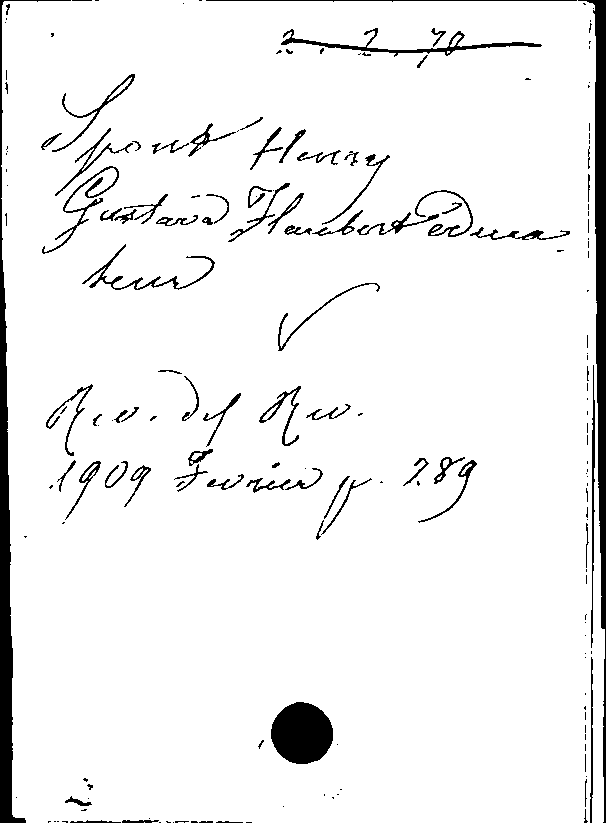 2. 2. 70
Spont Henry
Gustave Flaubert éduca
teur
Rev. des Rev.
1909 Fevrier p. 289